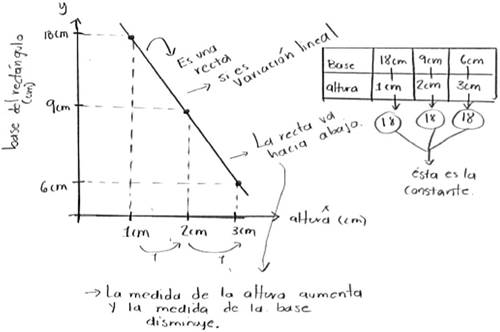 y
18cm
9cm
6cm
base del rectángulo
(cm)
Es una
recta
si es
variación lineal
La recta va
hacia abajo.
1cm
2cm
3cm
x
altura (cm)
1
1
Base 18cm 9cm 6cm
altura 1cm 2cm 3cm
18 18 18
ésta es la
constante.
→ La medida de la altura aumenta
y la medida de la base
disminuye.